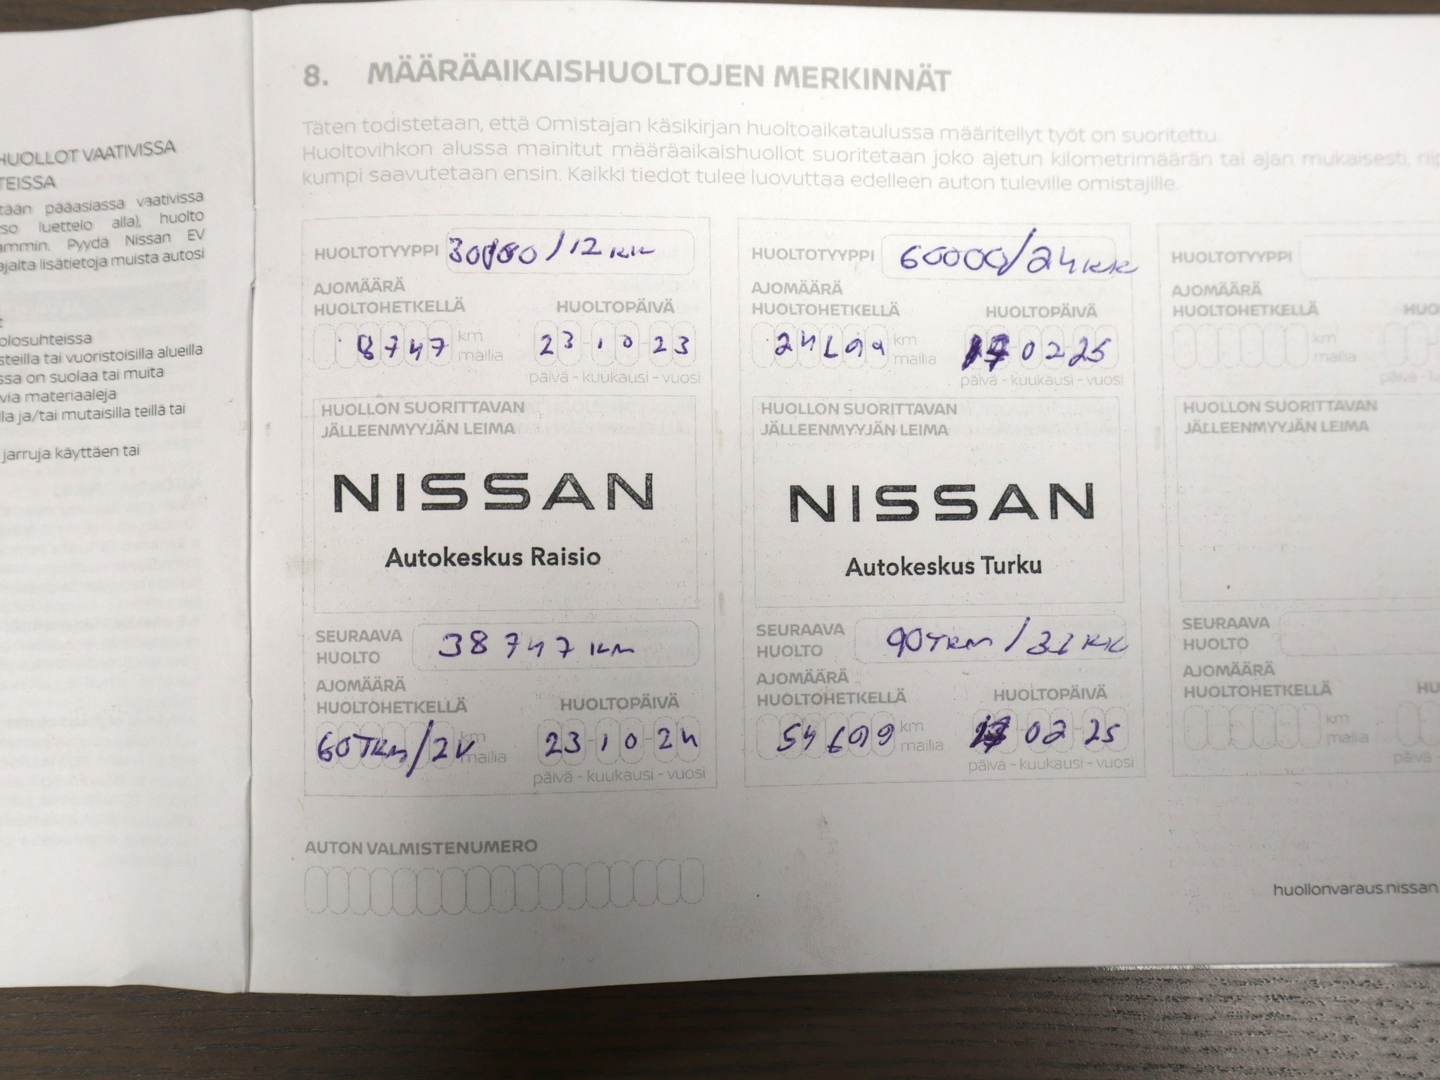 HUOLLOT VAATIVISSA
TEISSA
tään pääasiassa vaativissa
so luettelo alla), huolto
ammin. Pyydä Nissan EV
ajalta lisätietoja muista autosi
olosuhteissa
steilla tai vuoristoisilla alueilla
ssa on suolaa tai muita
via materiaaleja
lla ja/tai mutaisilla teillä tai
jarruja käyttäen tai
8. MÄÄRÄAIKAISHUOLTOJEN MERKINNÄT
Täten todistetaan, että Omistajan käsikirjan huoltoaikataulussa määritellyt työt on suoritettu.
Huoltovihkon alussa mainitut määräaikaishuollot suoritetaan joko ajetun kilometrimäärän tai ajan mukaisesti, riip
kumpi saavutetaan ensin. Kaikki tiedot tulee luovuttaa edelleen auton tuleville omistajille.
HUOLTOTYYPPI 30000/12 KK
AJOMÄÄRÄ
HUOLTOHETKELLÄ HUOLTOPÄIVÄ
8747 km mailia 23 10 23
päivä - kuukausi - vuosi
HUOLLON SUORITTAVAN
JÄLLEENMYYJÄN LEIMA
NISSAN
Autokeskus Raisio
SEURAAVA
HUOLTO 38747 KM
AJOMÄÄRÄ
HUOLTOHETKELLÄ HUOLTOPÄIVÄ
60TKM/2V km mailia 23 10 24
päivä - kuukausi - vuosi
AUTON VALMISTENUMERO
HUOLTOTYYPPI 60000/24KK
AJOMÄÄRÄ
HUOLTOHETKELLÄ HUOLTOPÄIVÄ
24699 km mailia 17 02 25
päivä - kuukausi - vuosi
HUOLLON SUORITTAVAN
JÄLLEENMYYJÄN LEIMA
NISSAN
Autokeskus Turku
SEURAAVA
HUOLTO 90TKM
AJOMÄÄRÄ
HUOLTOHETKELLÄ HUOLTOPÄIVÄ
54699 km mailia 17 02 25
päivä - kuukausi - vuosi
HUOLTOTYYPPI
AJOMÄÄRÄ
HUOLTOHETKELLÄ HUO
km mailia
HUOLLON SUORITTAVAN
JÄLLEENMYYJÄN LEIMA
SEURAAVA
HUOLTO
AJOMÄÄRÄ
HUOLTOHETKELLÄ HU
km mailia
huollonvaraus.nissan.